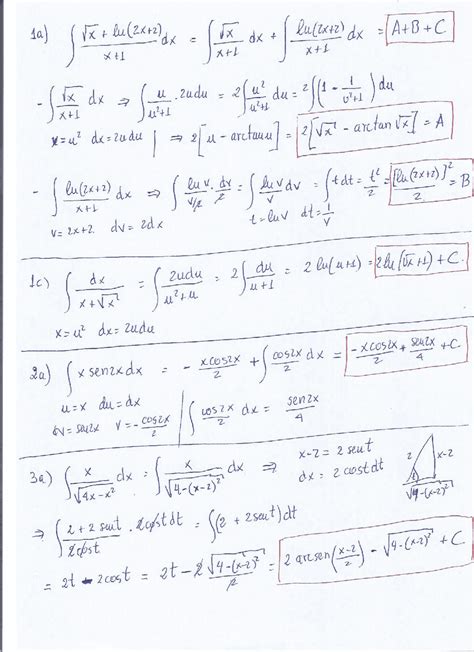 1a) ∫ (√x + ln(2x+2))/(x+1) dx = ∫ √x/(x+1) dx + ∫ ln(2x+2)/(x+1) dx = A+B+C
- ∫ √x/(x+1) dx ⇒ ∫ u/(u²+1) · 2udu = 2∫ u²/(u²+1) du = 2∫(1 - 1/(u²+1)) du
x = u² dx = 2udu | ⇒ 2[u - arctan u] = 2[√x - arctan √x] = A
- ∫ ln(2x+2)/(x+1) dx ⇒ ∫ ln v/(v/2) · dv/2 = ∫ ln v/v dv = ∫ t dt = t²/2 = [ln(2x+2)]²/2 = B
v = 2x+2 dv = 2dx t = ln v dt = 1/v
1c) ∫ dx/(x+√x) = ∫ 2udu/(u²+u) = 2∫ du/(u+1) = 2 ln(u+1) = 2 ln(√x+1) + C
x = u² dx = 2udu
2a) ∫ x sen2x dx = -xcos2x/2 + ∫ cos2x/2 dx = -xcos2x/2 + sen2x/4 + C
u = x du = dx
dv = sen2x v = -cos2x/2 | ∫ cos2x/2 dx = sen2x/4
3a) ∫ x/√(4x-x²) dx = ∫ x/√(4-(x-2)²) dx ⇒ x-2 = 2 sen t
dx = 2 cos t dt
2 x-2 t √(4-(x-2)²)
⇒ ∫ (2+2 sen t)/(2cos t) · 2cos t dt = ∫ (2 + 2sen t) dt
= 2t - 2cos t = 2t - 2 √(4-(x-2)²)/2 = 2 arcsen((x-2)/2) - √(4-(x-2)²) + C